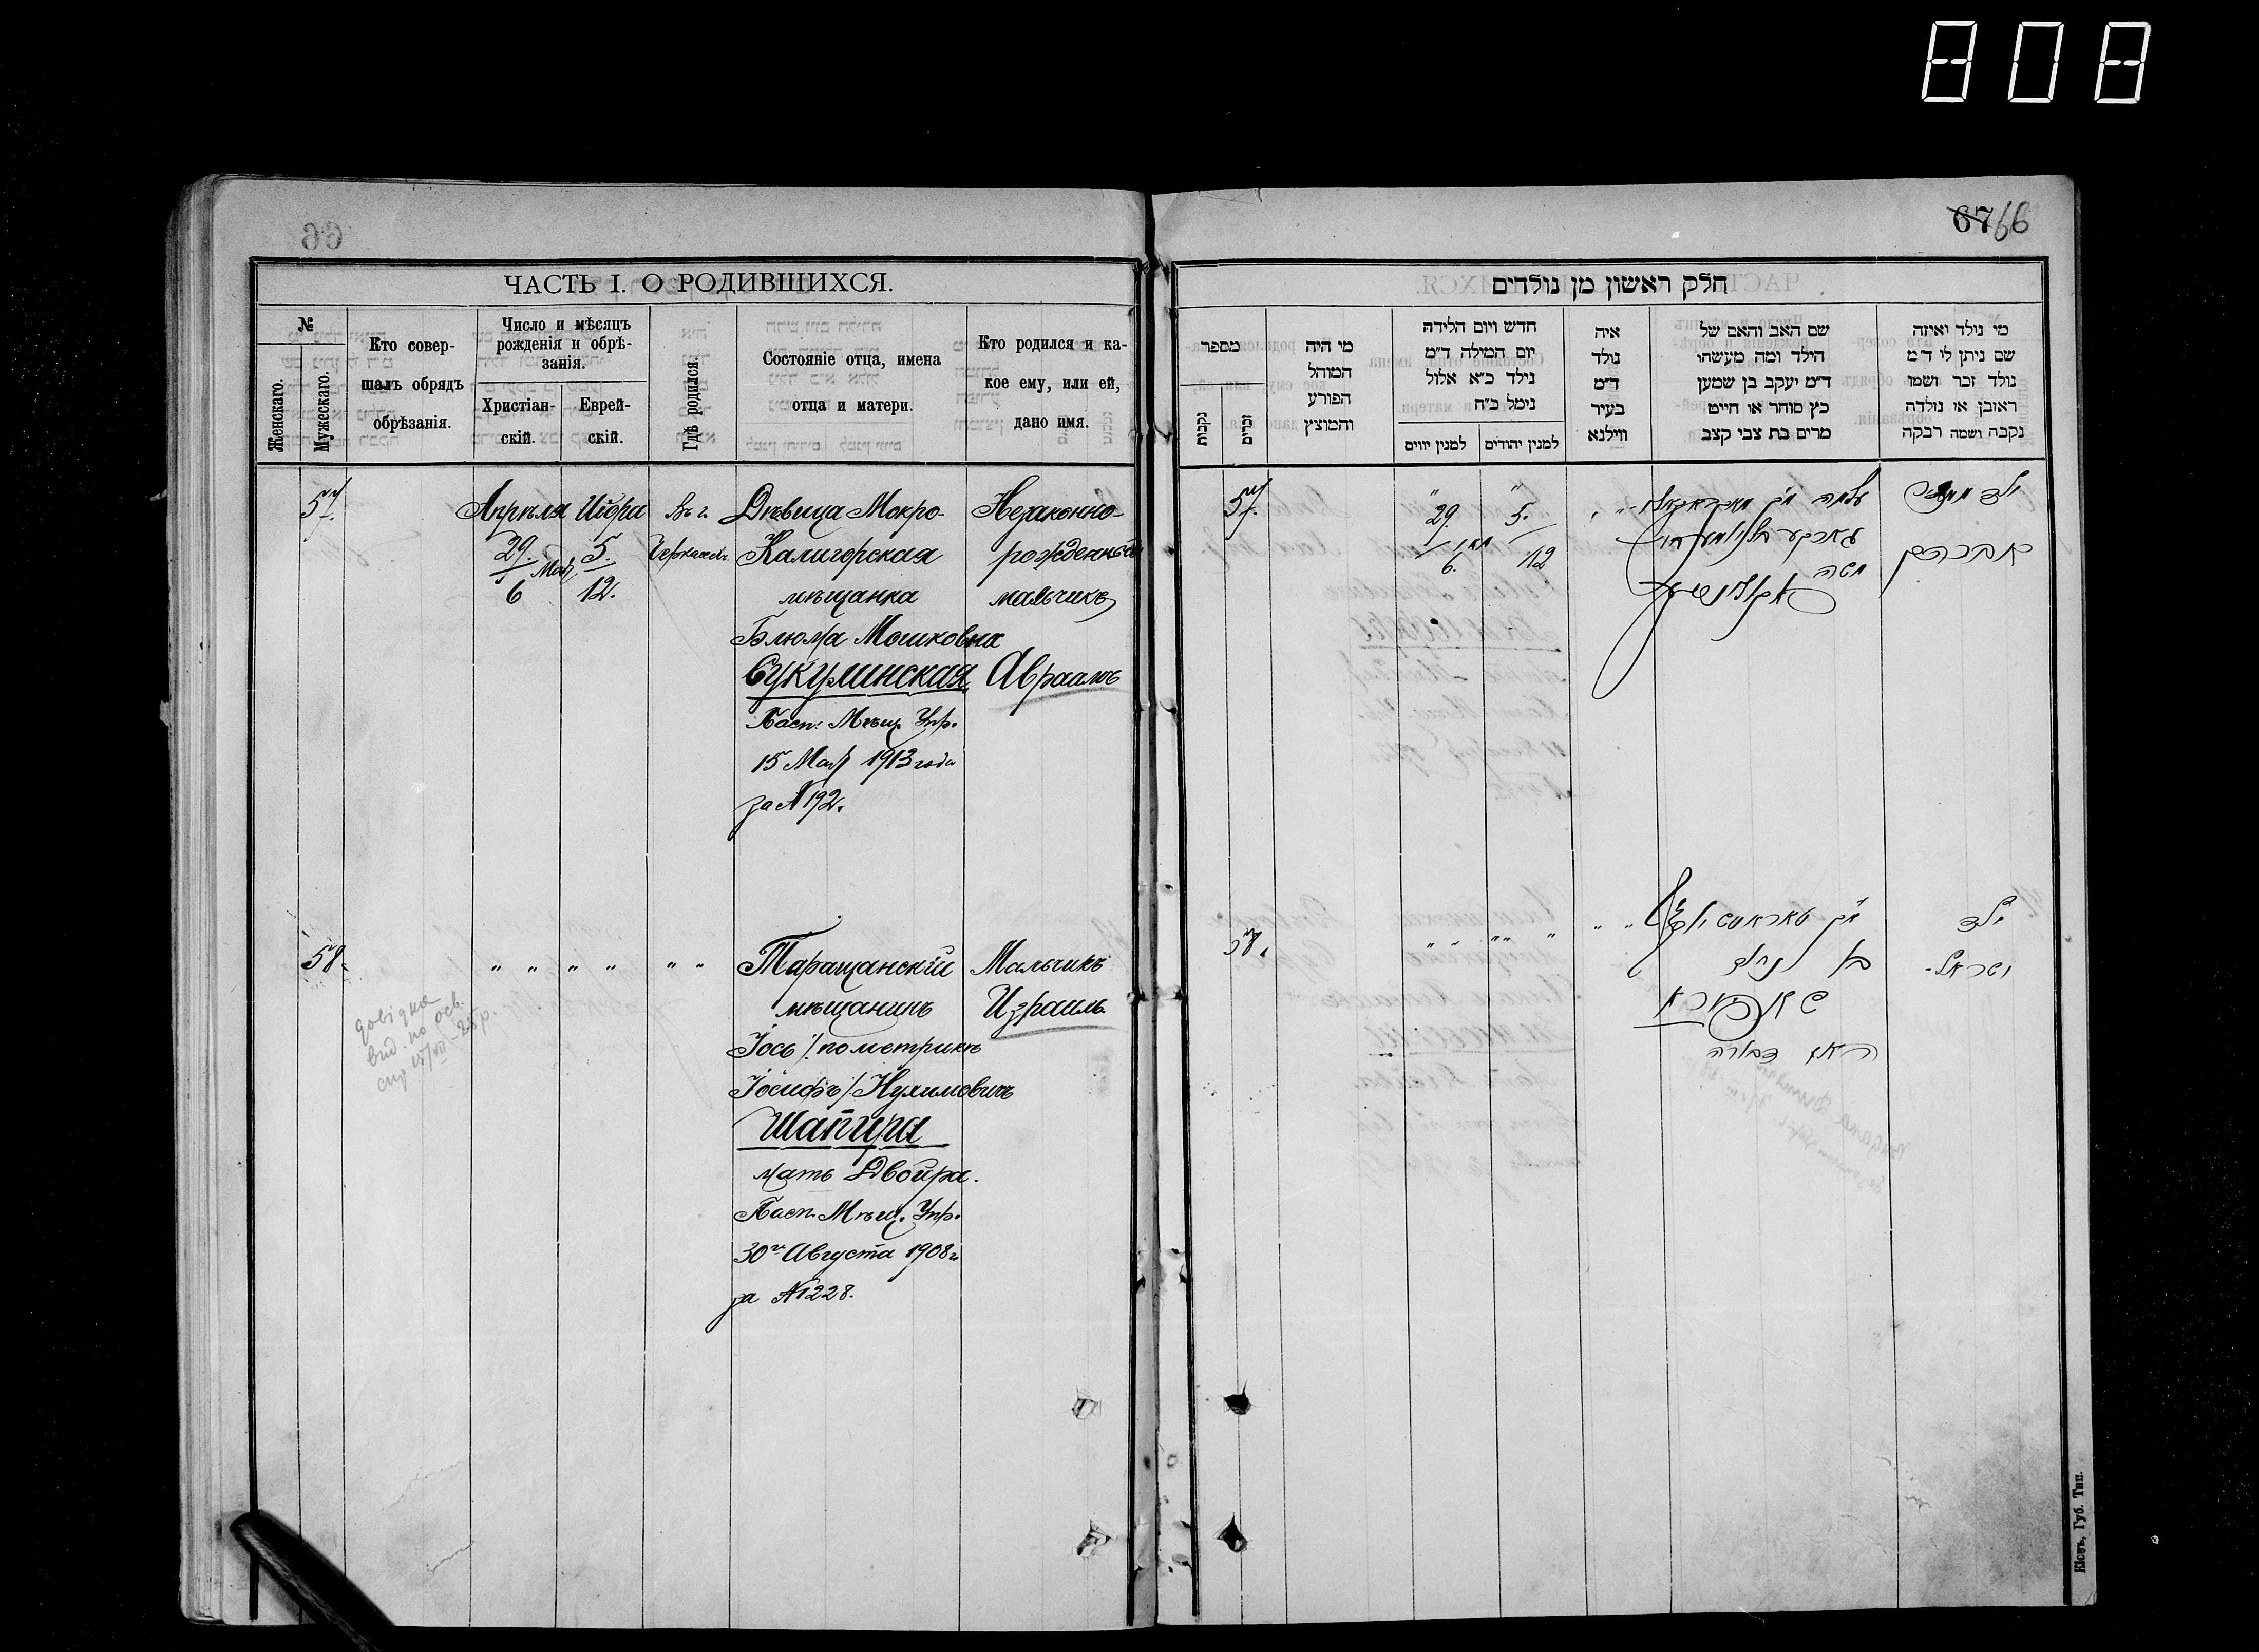 808
66
ЧАСТЬ I. О РОДИВШИХСЯ.
№
Женскаго.
Мужескаго.
Кто совер-
шалъ обрядъ
обрѣзанія.
Число и мѣсяцъ
рожденія и обрѣ-
занія.
Христіан-
скій.
Еврей-
скій.
Гдѣ родился.
Состояніе отца, имена
отца и матери.
Кто родился и ка-
кое ему, или ей,
дано имя.
57.
Апрѣля
29.
Мая
6
Иіора
5.
12.
Въ г.
Черкассъ
Дѣвица Мокро-
Калигорская
мѣщанка
Блюма Мошковна
Сукулинская
Пасп. Мѣщ. Упр.
15 Мая 1913 года
за № 192.
Незаконно-
рожденный
мальчикъ
Авраамъ
58.
" " " " " "
Таращанскій
мѣщанинъ
Іось /: по метрикѣ
Іосифъ /: Нухимовичъ
Шапира
мать Двойра.
Пасп. Мѣщ. Упр.
30го Августа 1908 г.
за № 1228.
Мальчикъ
Израиль
довідка
вид. по осв.
67 66
חלק ראשון מן נולדים
מי נולד ואיזה
שם ניתן לי ד״מ
נולד זכר ושמו
ראובן או נולדה
נקבה ושמה רבקה
שם האב והאם של
הילד ומה מעשהו
ד״מ יעקב בן שמען
כץ סוחר או חייט
מרים בת צבי קצב
איה
נולד
ד״מ
בעיר
ווילנא
חדש ויום הלידה
יום המילה ד״מ
נילד כ״א אלול
נימל כ״ח
למנין יהודים
למנין יווים
מי היה
המוהל
הפורע
והמוצץ
מספר
זכרים
נקבות
57.
29.
6.
5.
12
ילד
אברהם
משה
58.
ילד
ישראל
שאפירא
דבורה
Кіевъ, Губ. Тип.